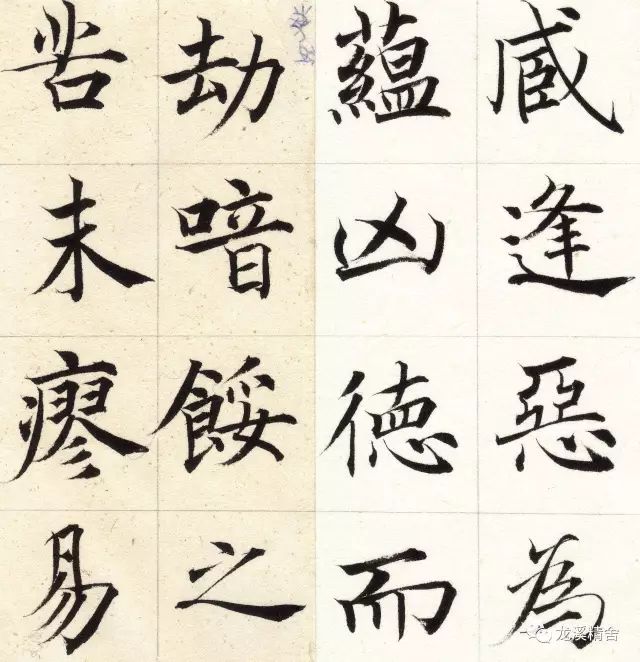 臧逢惡為
蘊凶德而
劫喑餒之
未瘳易
龙溪精舍